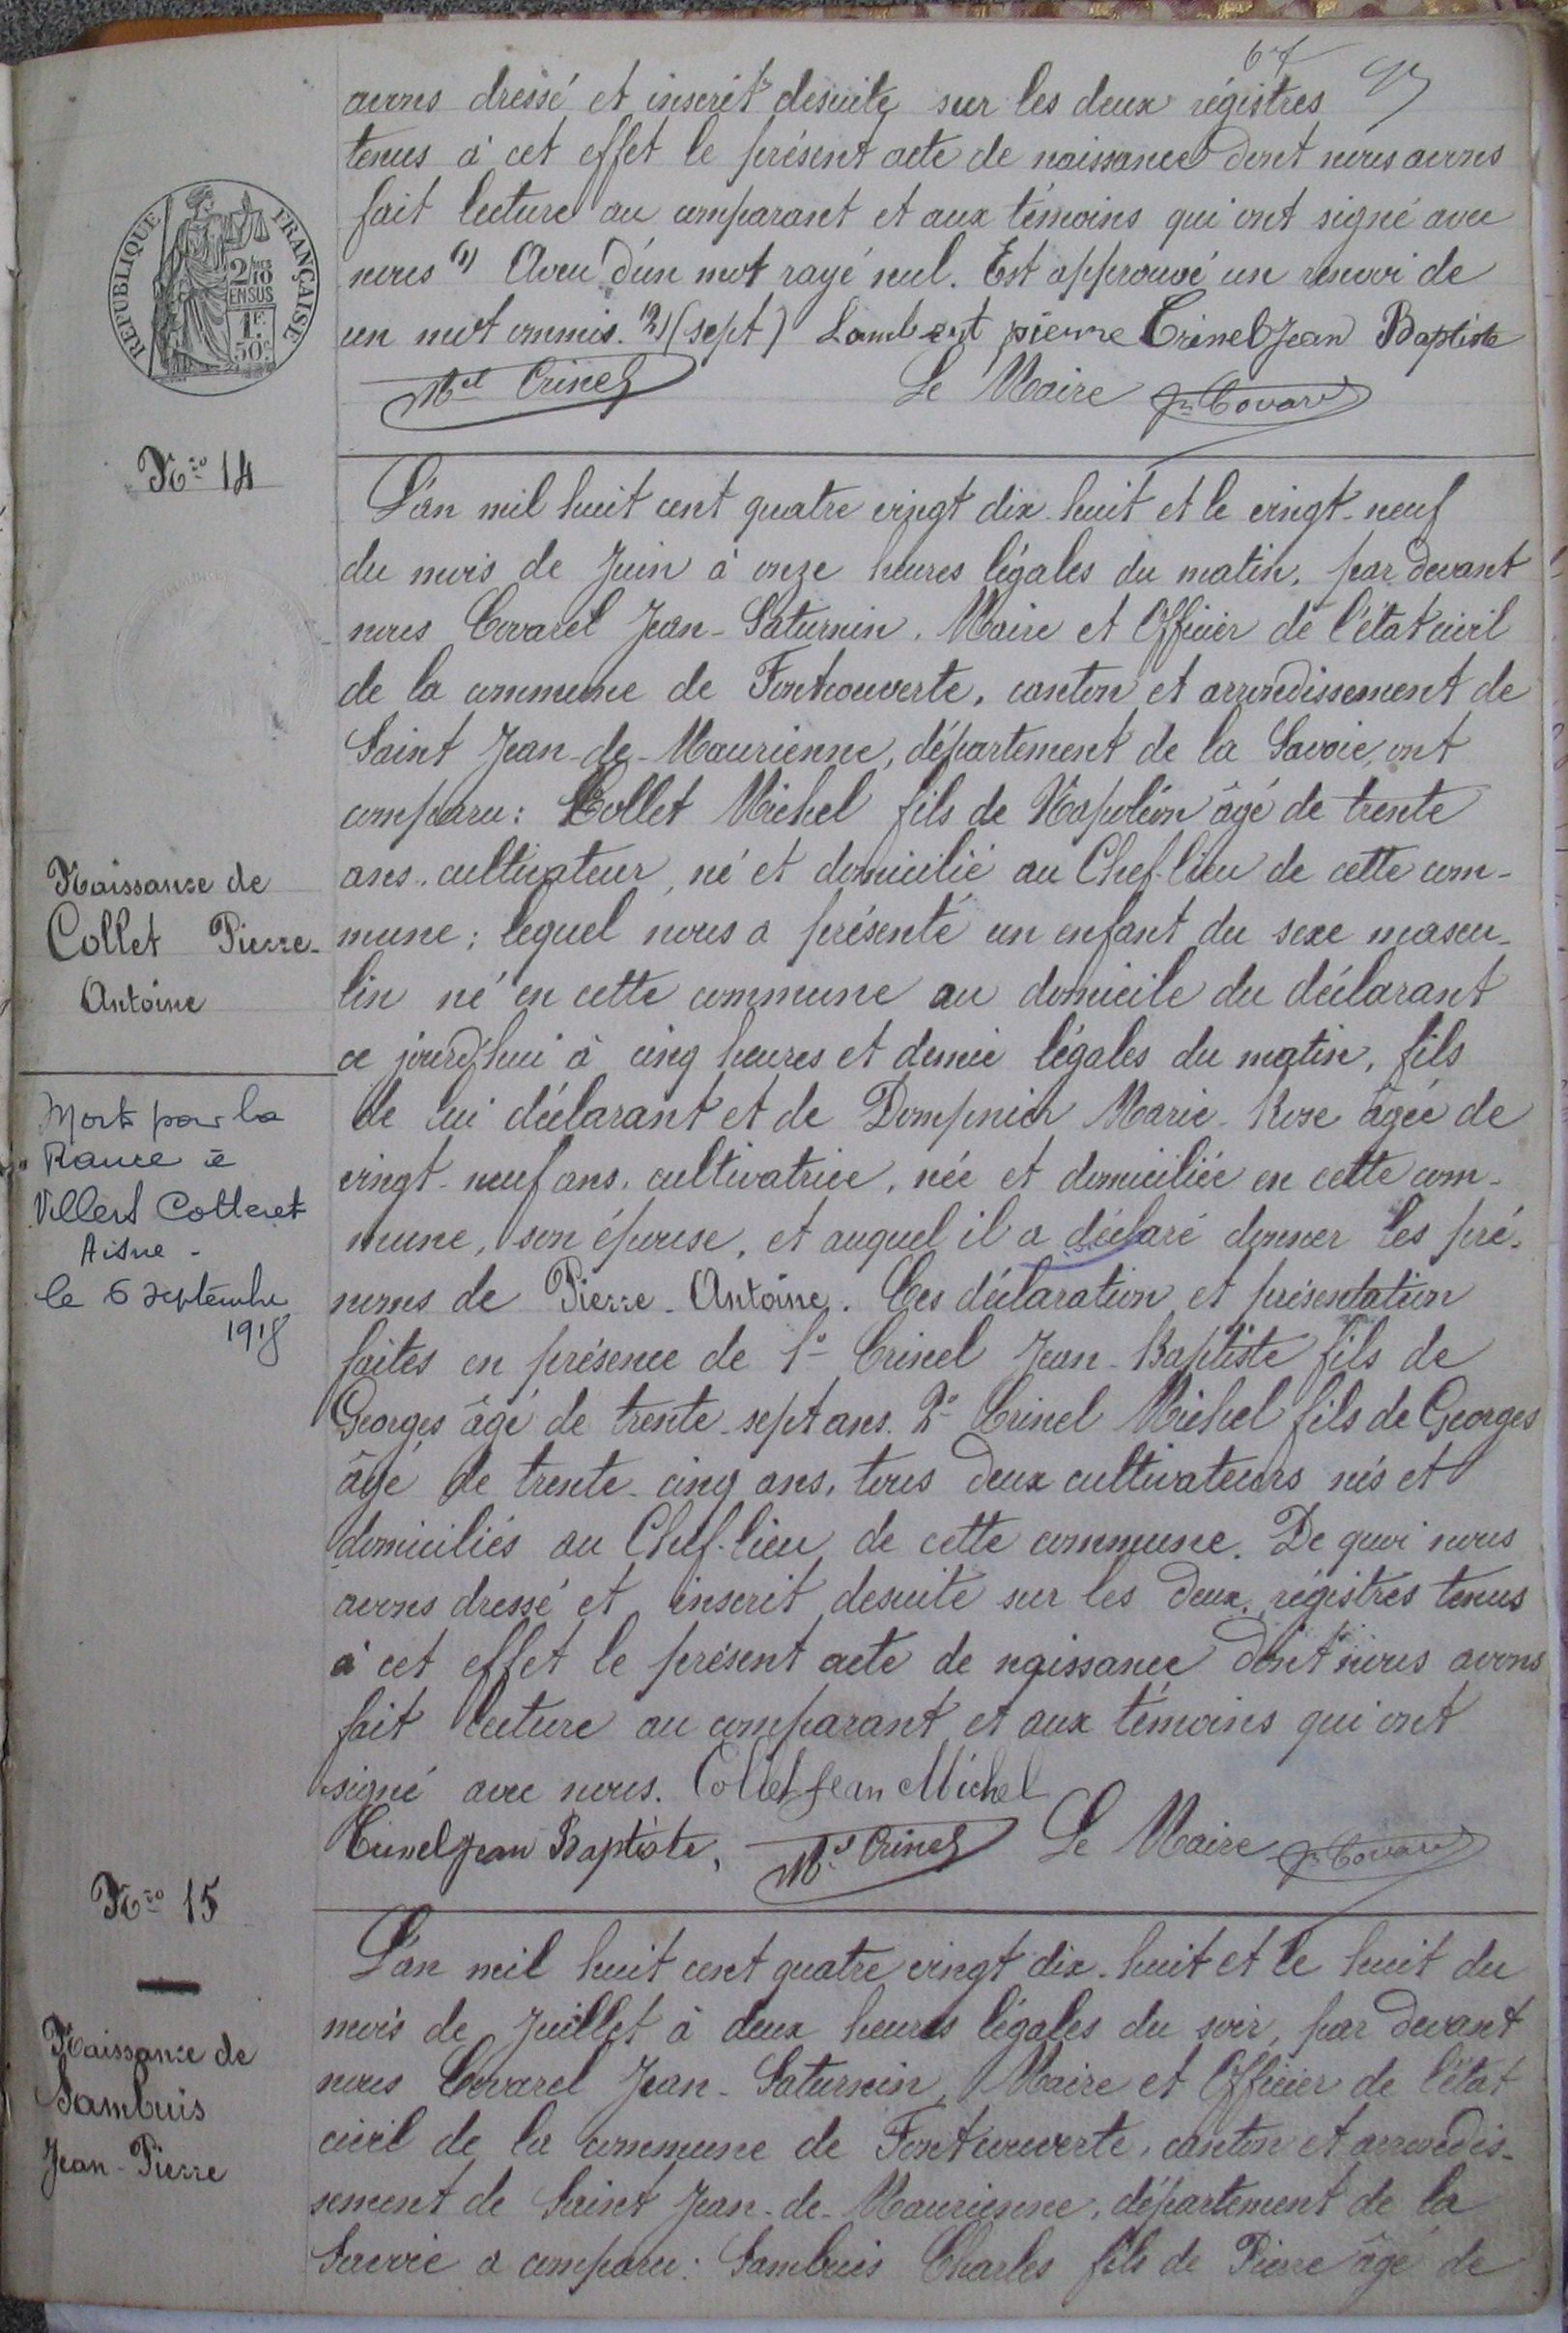 67
avons dressé et inscrit desuite sur les deux régistres
tenus à cet effet le présent acte de naissance dont nous avons
fait lecture au comparant et aux témoins qui ont signé avec
nous (1) Aveu d'un mot rayé nul. Est approuvé un renvoi de
un mot ommis. (2) (sept) Lambert pierre Crinel Jean Baptiste
Mel Crinel Le Maire Jn Covarel
REPUBLIQUE FRANÇAISE
2/10
EN SUS
1F
50c
Nro 14
L'an mil huit cent quatre vingt dix-huit et le vingt-neuf
du mois de Juin à onze heures légales du matin, par devant
nous Covarel Jean-Saturnin, Maire et Officier de l'état civil
de la commune de Fontcouverte, canton et arrondissement de
Saint Jean-de-Maurienne, département de la Savoie, ont
comparu: Collet Michel fils de Napoléon âgé de trente
ans, cultivateur, né et domicilié au Chef-lieu de cette com-
mune; lequel nous a présenté un enfant du sexe mascu-
lin né en cette commune au domicile du déclarant
ce jourd'hui à cinq heures et demie légales du matin, fils
de lui déclarant et de Dompnier Marie-Rose âgée de
vingt-neuf ans, cultivatrice, née et domiciliée en cette com-
mune, son épouse, et auquel il a déclaré donner les pré-
noms de Pierre-Antoine. Ces déclaration et présentation
faites en présence de 1o Crinel Jean-Baptiste fils de
Georges âgé de trente-sept ans. 2o Crinel Michel fils de Georges
âgé de trente-cinq ans, tous deux cultivateurs nés et
domiciliés au Chef-lieu de cette commune. De quoi nous
avons dressé et inscrit desuite sur les deux régistres tenus
à cet effet le présent acte de naissance dont nous avons
fait lecture au comparant et aux témoins qui ont
signé avec nous. Collet Jean Michel
Crinel Jean Baptiste, Mel Crinel Le Maire Jn Covarel
Naissance de
Collet Pierre-
Antoine
Mort pour la
France à
Villers Cotteret
Aisne -
le 6 septembre
1918
Nro 15
Naissance de
Sambuis
Jean-Pierre
L'an mil huit cent quatre vingt dix-huit et le huit du
mois de Juillet à deux heures légales du soir, par devant
nous Covarel Jean-Saturnin, Maire et Officier de l'état
civil de la commune de Fontcouverte, canton et arrondis-
sement de Saint Jean-de-Maurienne, département de la
Savoie a comparu: Sambuis Charles fils de Pierre âgé de